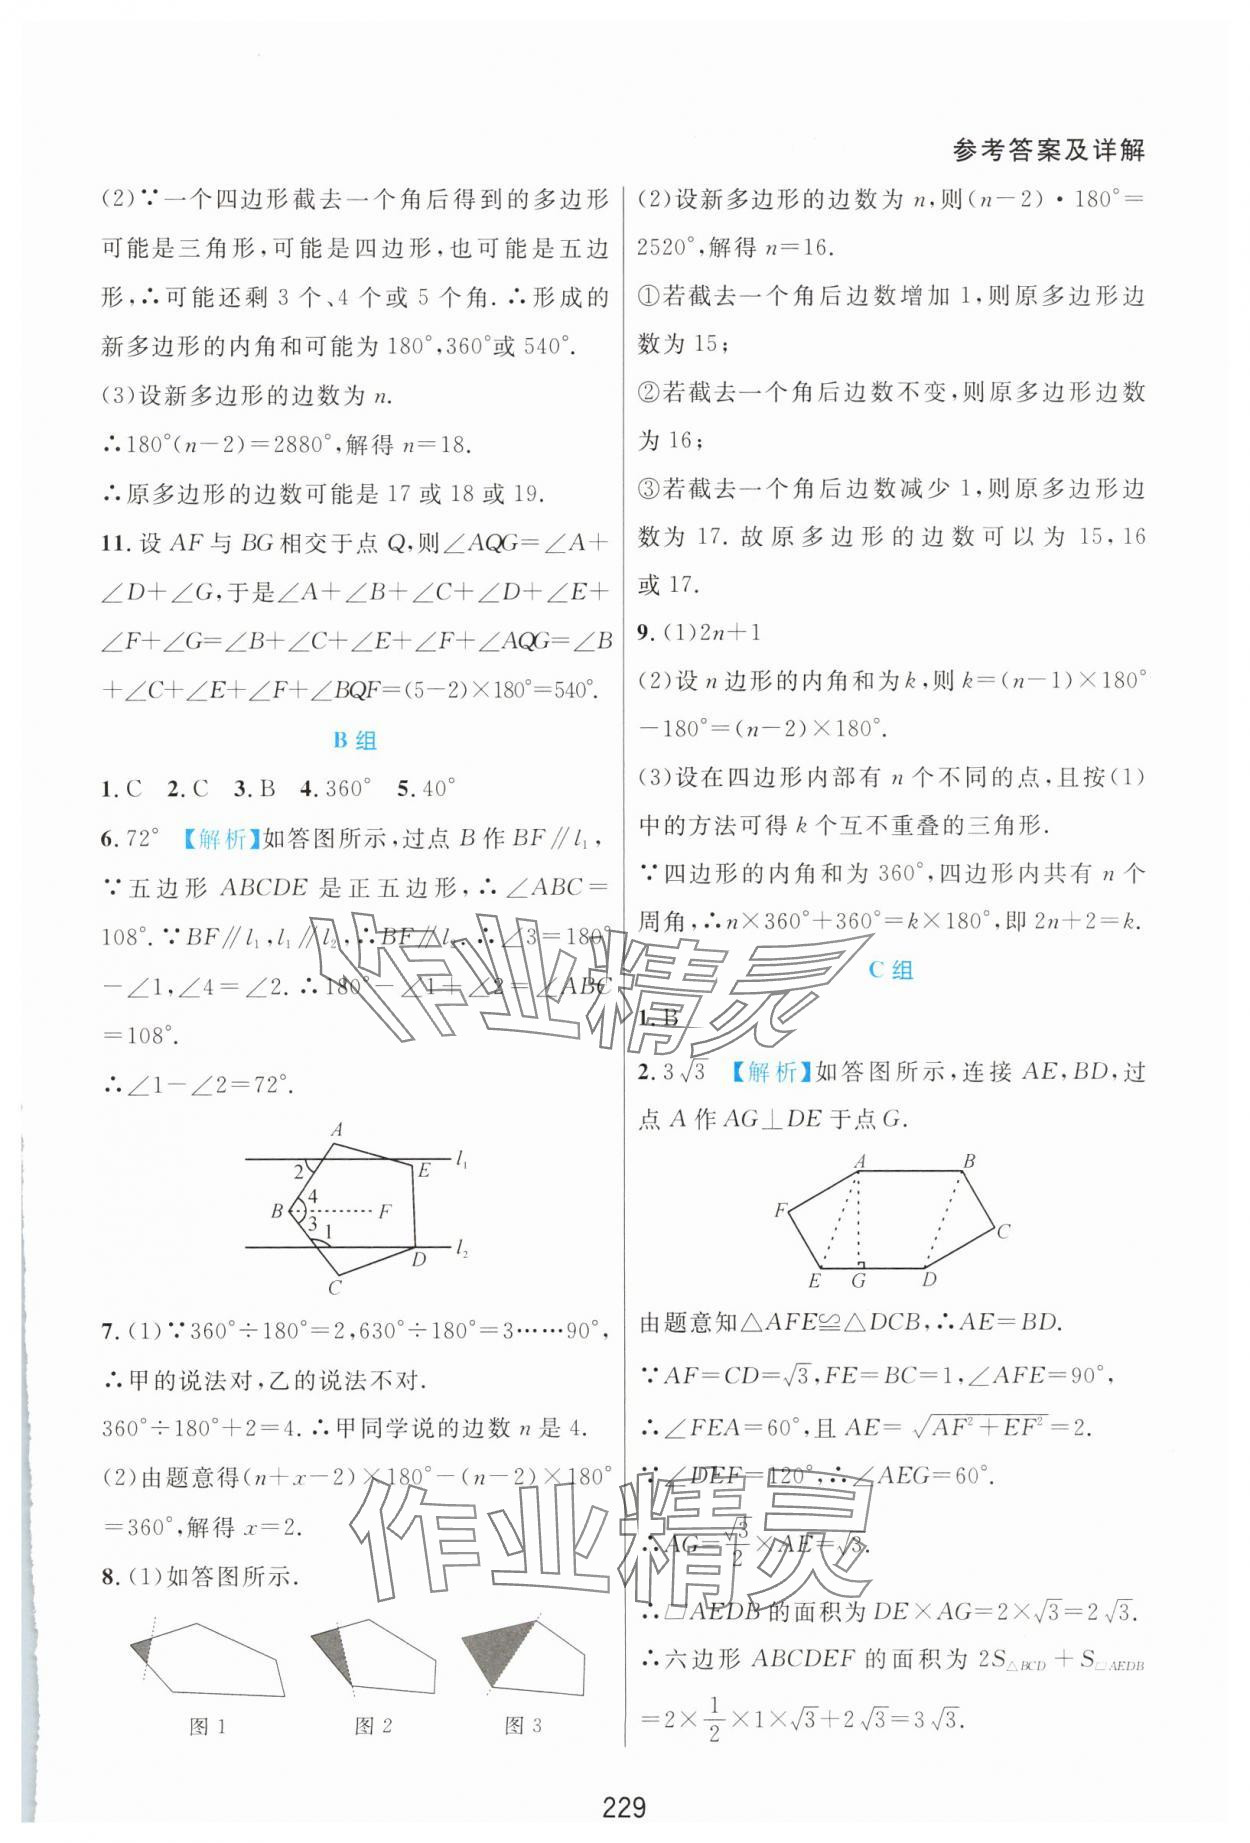 参考答案及详解
(2)∵一个四边形截去一个角后得到的多边形
可能是三角形,可能是四边形,也可能是五边
形,∴可能还剩 3 个、4 个或 5 个角.∴形成的
新多边形的内角和可能为 180°,360°或 540°.
(3)设新多边形的边数为 n.
∴180°(n-2)=2880°,解得 n=18.
∴原多边形的边数可能是 17 或 18 或 19.
11. 设 AF 与 BG 相交于点 Q,则∠AQG=∠A+
∠D+∠G,于是∠A+∠B+∠C+∠D+∠E+
∠F+∠G=∠B+∠C+∠E+∠F+∠AQG=∠B
+∠C+∠E+∠F+∠BQF=(5-2)×180°=540°.
B 组
1. C  2. C  3. B  4. 360°  5. 40°
6. 72° 【解析】如答图所示,过点 B 作 BF∥l₁,
∵五边形 ABCDE 是正五边形,∴∠ABC=
108°.∵BF∥l₁,l₁∥l₂,∴BF∥l₂.∴∠3=180°
-∠1,∠4=∠2.∴180°-∠1+∠2=∠ABC
=108°.
∴∠1-∠2=72°.
A
2
E
l₁
4
B
F
3
1
D
l₂
C
7. (1)∵360°÷180°=2,630°÷180°=3……90°,
∴甲的说法对,乙的说法不对.
360°÷180°+2=4.∴甲同学说的边数 n 是 4.
(2)由题意得(n+x-2)×180°-(n-2)×180°
=360°,解得 x=2.
8. (1)如答图所示.
图 1 图 2 图 3
(2)设新多边形的边数为 n,则(n-2)·180°=
2520°,解得 n=16.
①若截去一个角后边数增加 1,则原多边形边
数为 15;
②若截去一个角后边数不变,则原多边形边数
为 16;
③若截去一个角后边数减少 1,则原多边形边
数为 17. 故原多边形的边数可以为 15,16
或 17.
9. (1)2n+1
(2)设 n 边形的内角和为 k,则 k=(n-1)×180°
-180°=(n-2)×180°.
(3)设在四边形内部有 n 个不同的点,且按(1)
中的方法可得 k 个互不重叠的三角形.
∵四边形的内角和为 360°,四边形内共有 n 个
周角,∴n×360°+360°=k×180°,即 2n+2=k.
C 组
1. B
2. 3√3 【解析】如答图所示,连接 AE,BD,过
点 A 作 AG⊥DE 于点 G.
A
B
F
C
E
G
D
由题意知△AFE≌△DCB,∴AE=BD.
∵AF=CD=√3,FE=BC=1,∠AFE=90°,
∴∠FEA=60°,且 AE=√(AF²+EF²)=2.
∵∠DEF=120°,∴∠AEG=60°.
∴AG=√3/2×AE=√3.
∴□AEDB 的面积为 DE×AG=2×√3=2√3.
∴六边形 ABCDEF 的面积为 2S△BCD+S□AEDB
=2×1/2×1×√3+2√3=3√3.
作业精灵
作业精灵
229